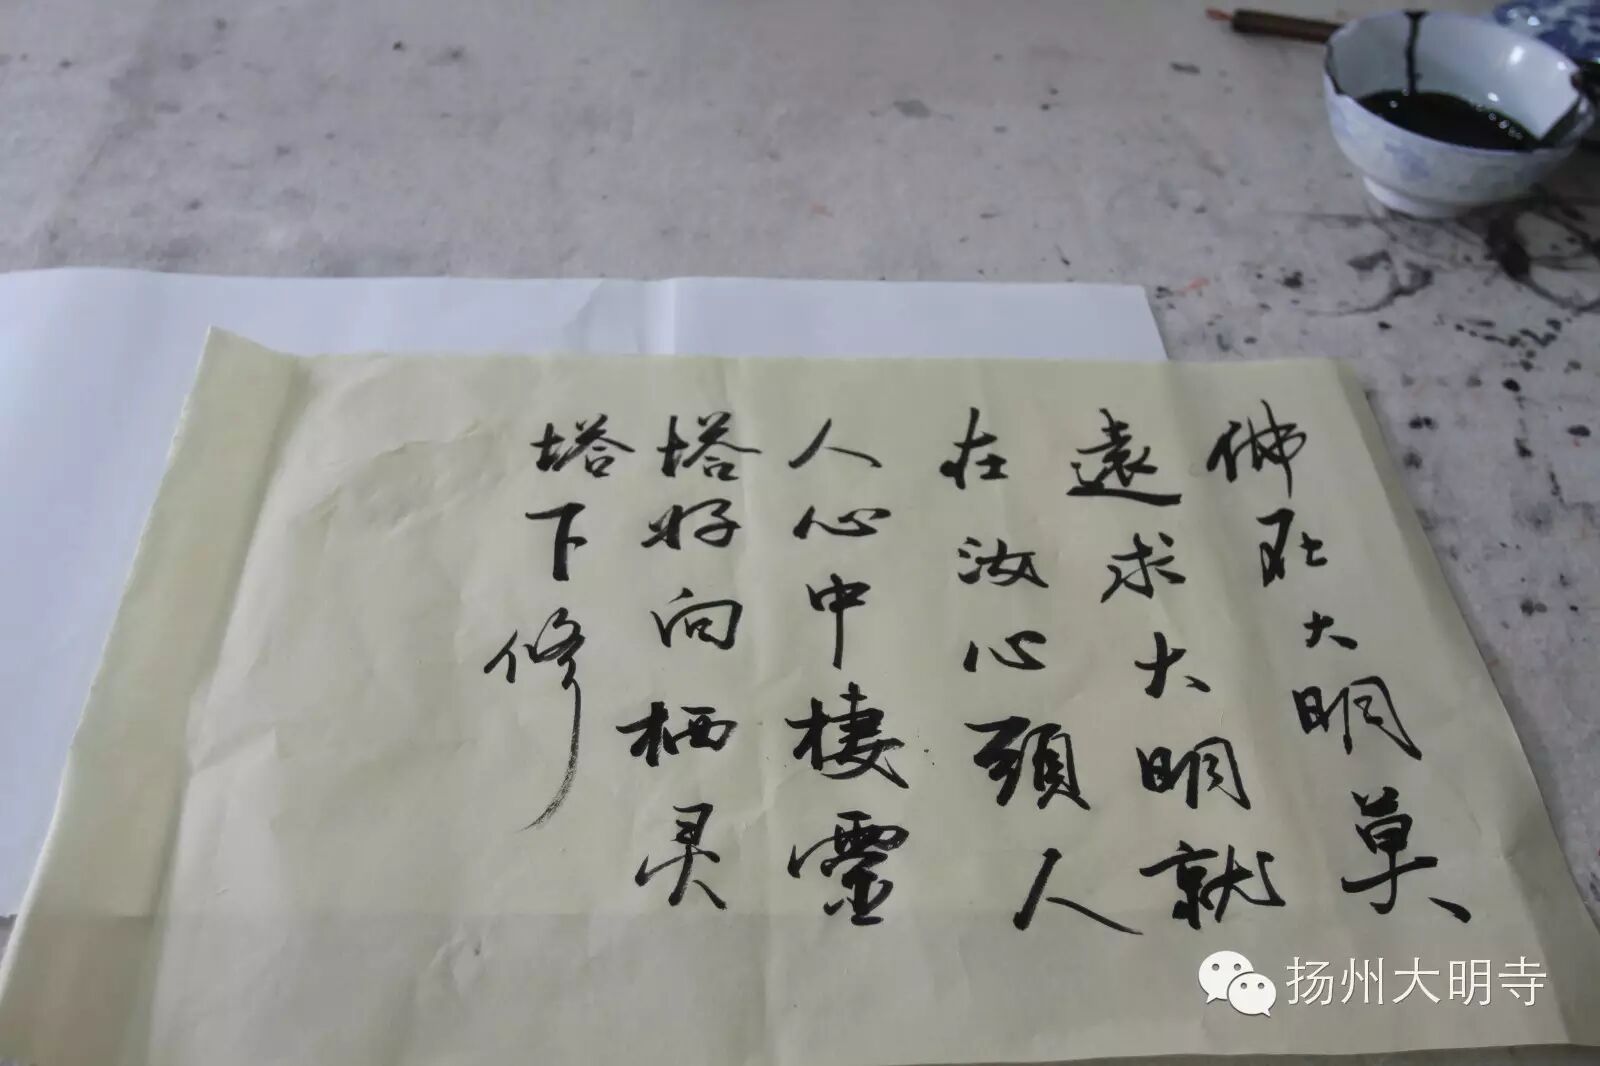 佛在大明莫
遠求大明就
在汝心頭人
人心中棲靈
塔好向栖灵
塔下修
扬州大明寺